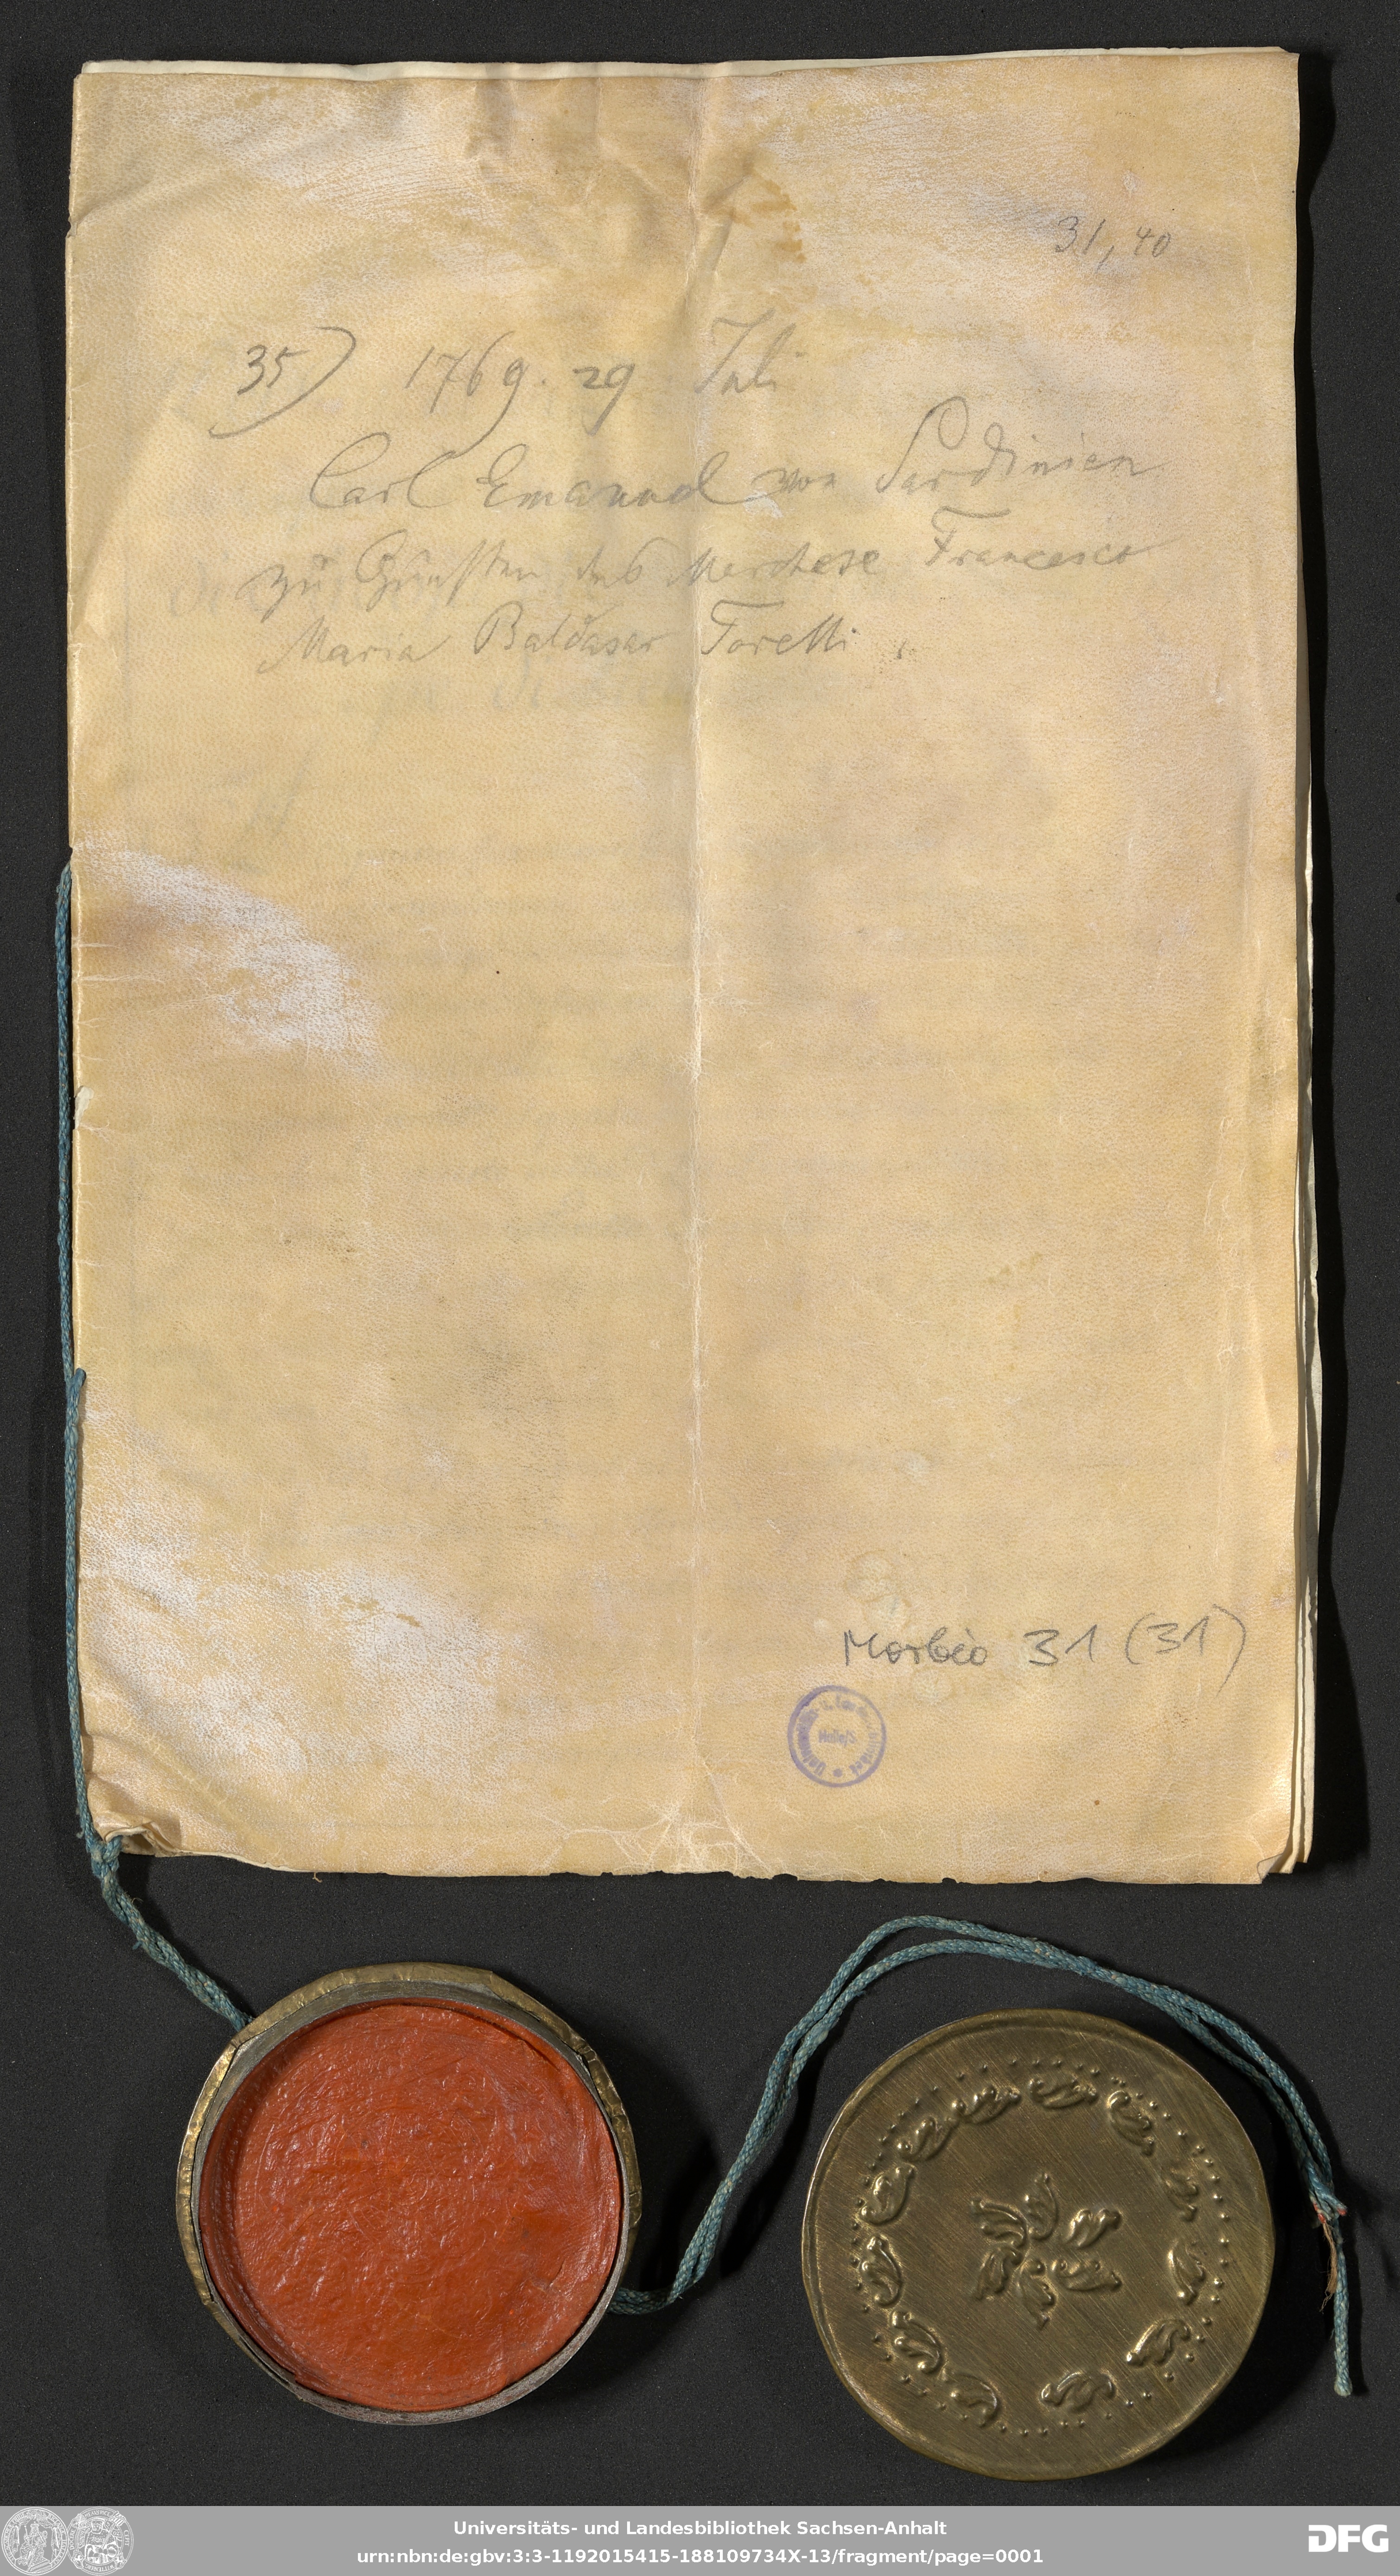 31, 40
35) 1769. 29 Juli
Carl Emanuel von Sardinien
zu Gunsten des Marchese Francesco
Maria Baldasar Torelli.
Morbio 31 (31)
Universitäts- und Landesbibliothek Sachsen-Anhalt
urn:nbn:de:gbv:3:3-1192015415-188109734X-13/fragment/page=0001
DFG